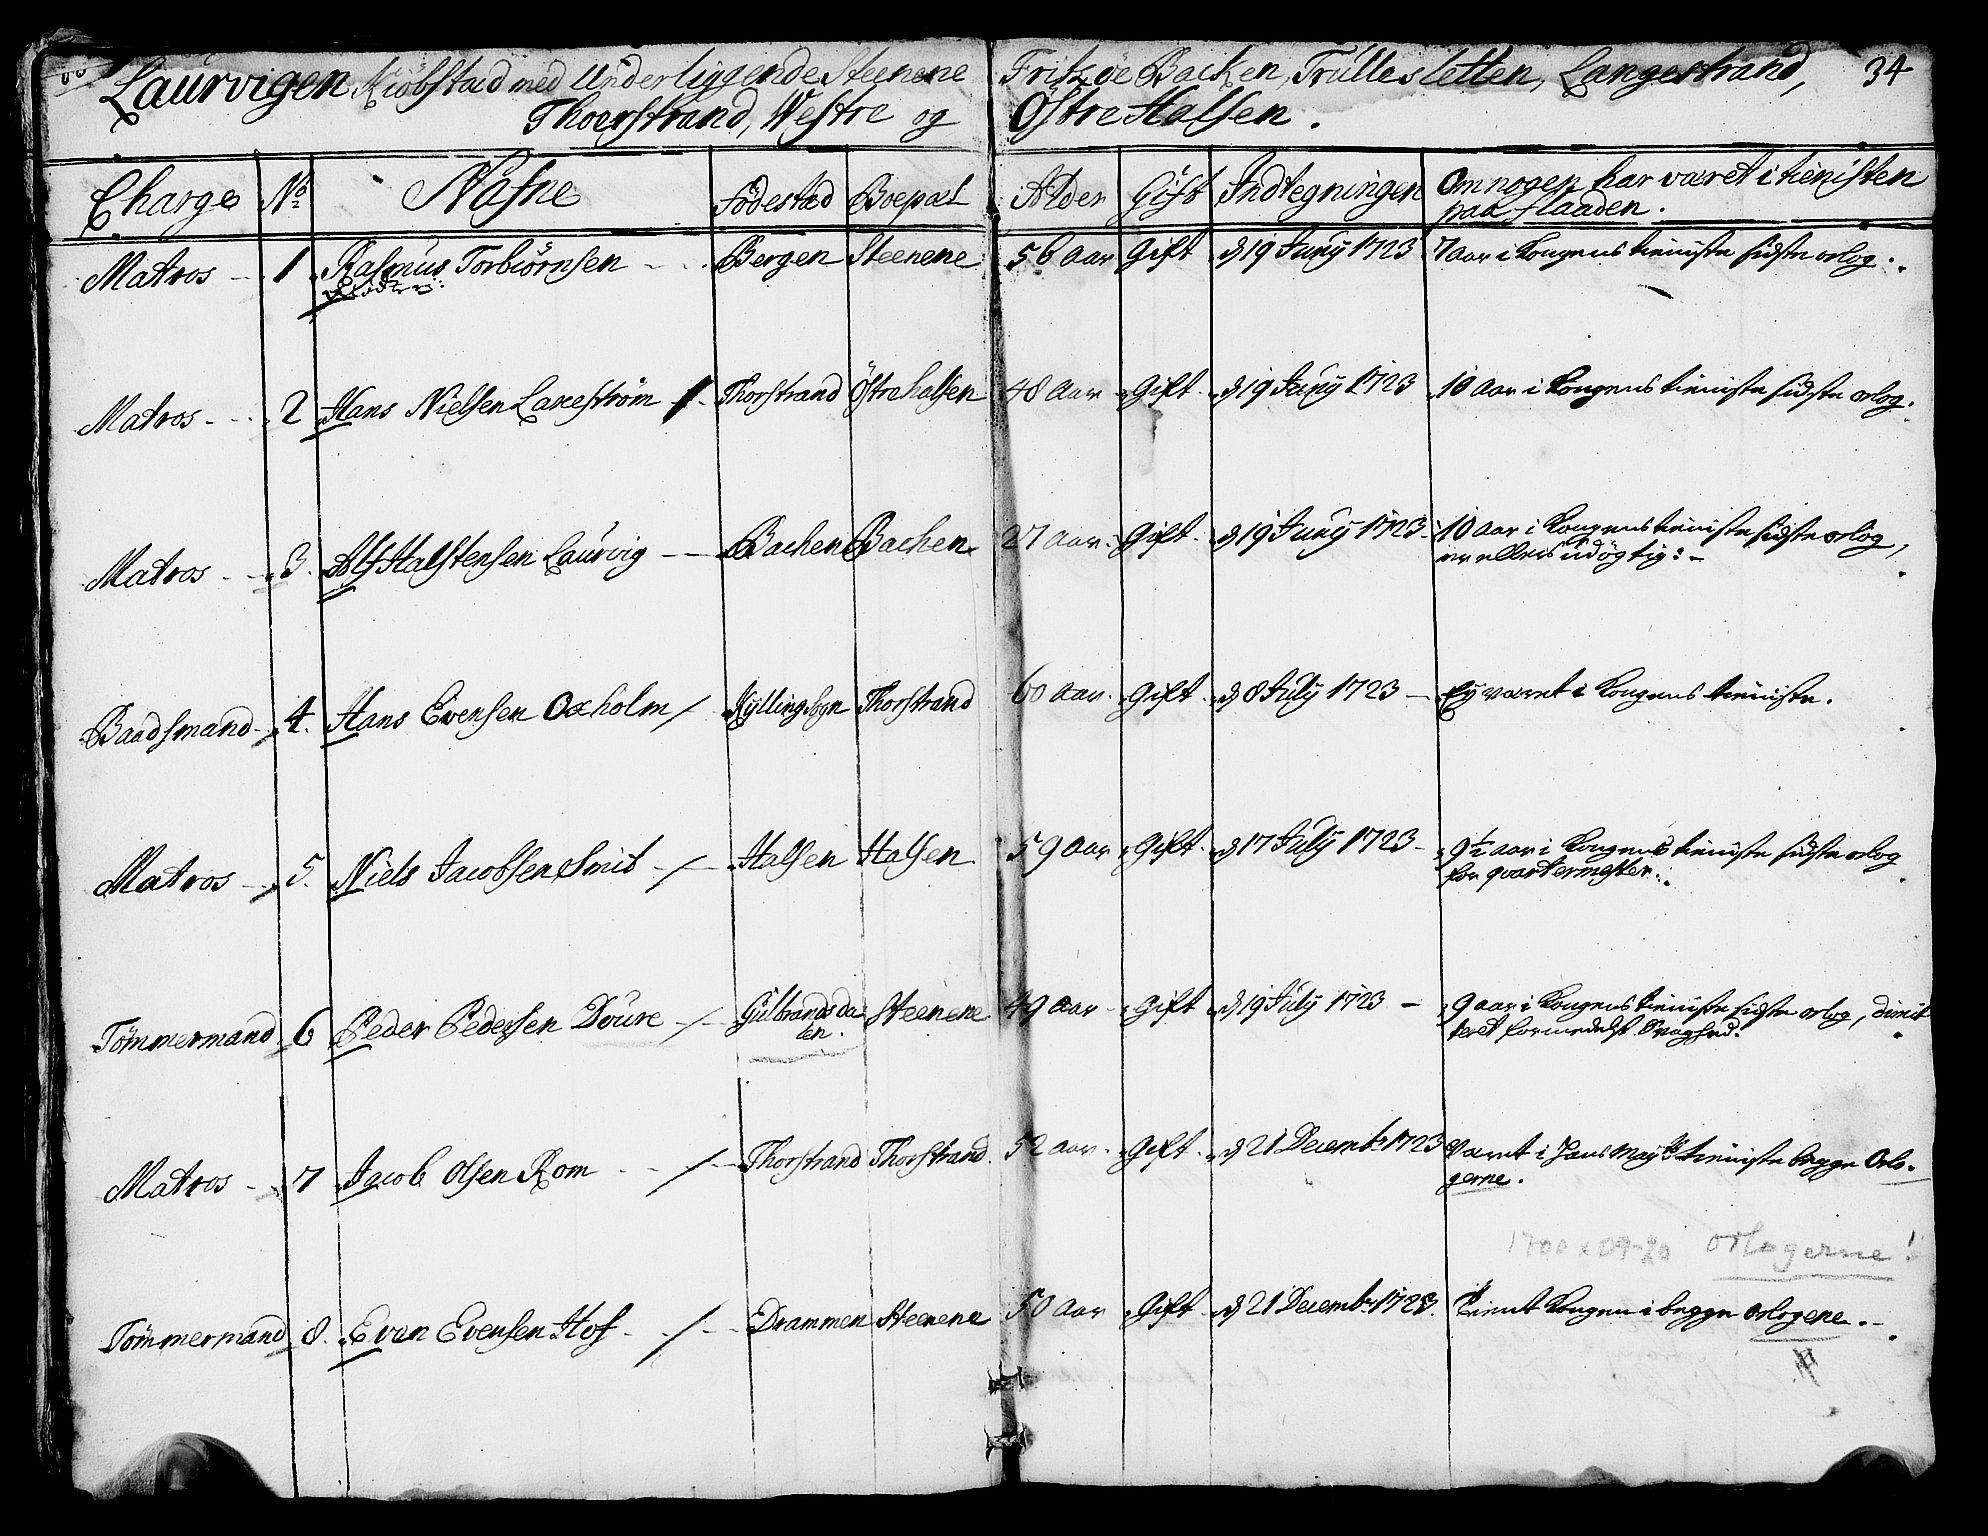 Laurvigen Kiöbstæd med Underliggende Steenene Fritzöe Backen, Trulles letten, Langestrand, 34
Thoerstrand, Westre og Östre Halsen.
Charge No Nafne Födestæd Boepæl Alder Gift Indtegningen Om nogen har været i tienisten
paa flaaden.
Matros 1 Rasmus Torbiörnsen Bergen Steenene 56 aar Gift d 19 Juny 1723 7 aar i Kongens tieniste sidste orlog.
Matros 2 Hans Nielsen Laxeström Thorstrand Östrehalsen 48 aar Gift d 19 Juny 1723 10 aar i Kongens tieniste sidste orlog.
Matros 3. Alf Halstensen Laurvig Bachen Bachen 27 aar Gift d 19 Juny 1723 10 aar i Kongens tieniste sidste orlog,
er ellers udögtig:
Baadsmand 4. Hans Evensen Oxholm / Kyllingsogn Thorstrand 60 aar Gift d 8 July 1723 Ey været i Kongens tieniste.
Matros 5. Niels Jacobsen Smit / Halsen Halsen 59 aar Gift d 17 July 1723 9½ aar i Kongens tieniste sidste orlog
for quartermester:
Tömmermand 6 Peder Pedersen Doure / Gulbrandsda
len. Steenene 49 aar Gift d 19 July 1723 9 aar i Kongens tieniste sidste orlog, dimit
teret formedelst Svaghed.
Matros 7 Jacob Olsen Rom / Thorstrand Thorstrand 52 aar Gift d 21 Decemb: 1723 Været i Hans May:ts tieniste begge Orlo-
gerne.
1700 & 09-20 orlogerne!
Tömmermand 8. Even Evensen Hof / Drammen Steenene 50 aar Gift d 21 Decemb: 1723. Tient Kongen i begge orlogene.